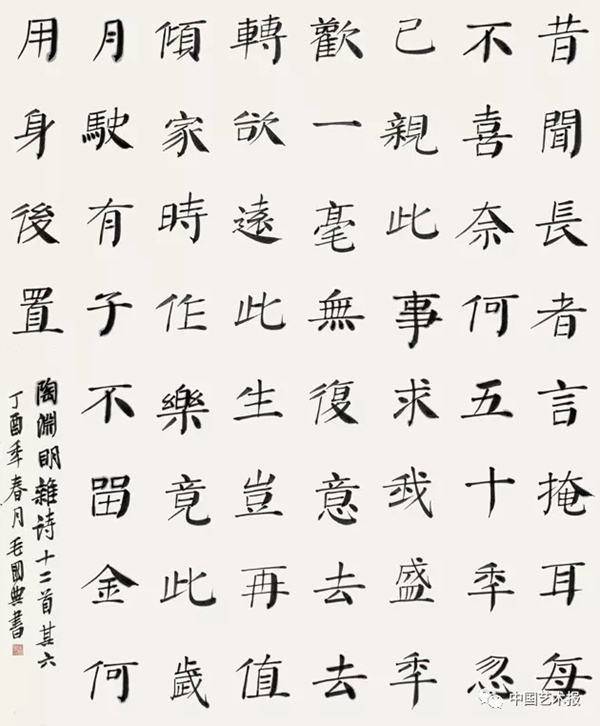 昔聞長者言掩耳每
不喜奈何五十年忽
已親此事求我盛年
歡一毫無復意去去
轉欲遠此生豈再值
傾家時作樂竟此歲
月駛有子不留金何
用身後置
陶淵明雜诗十二首其六
丁酉年春月毛國典書
中国艺术报